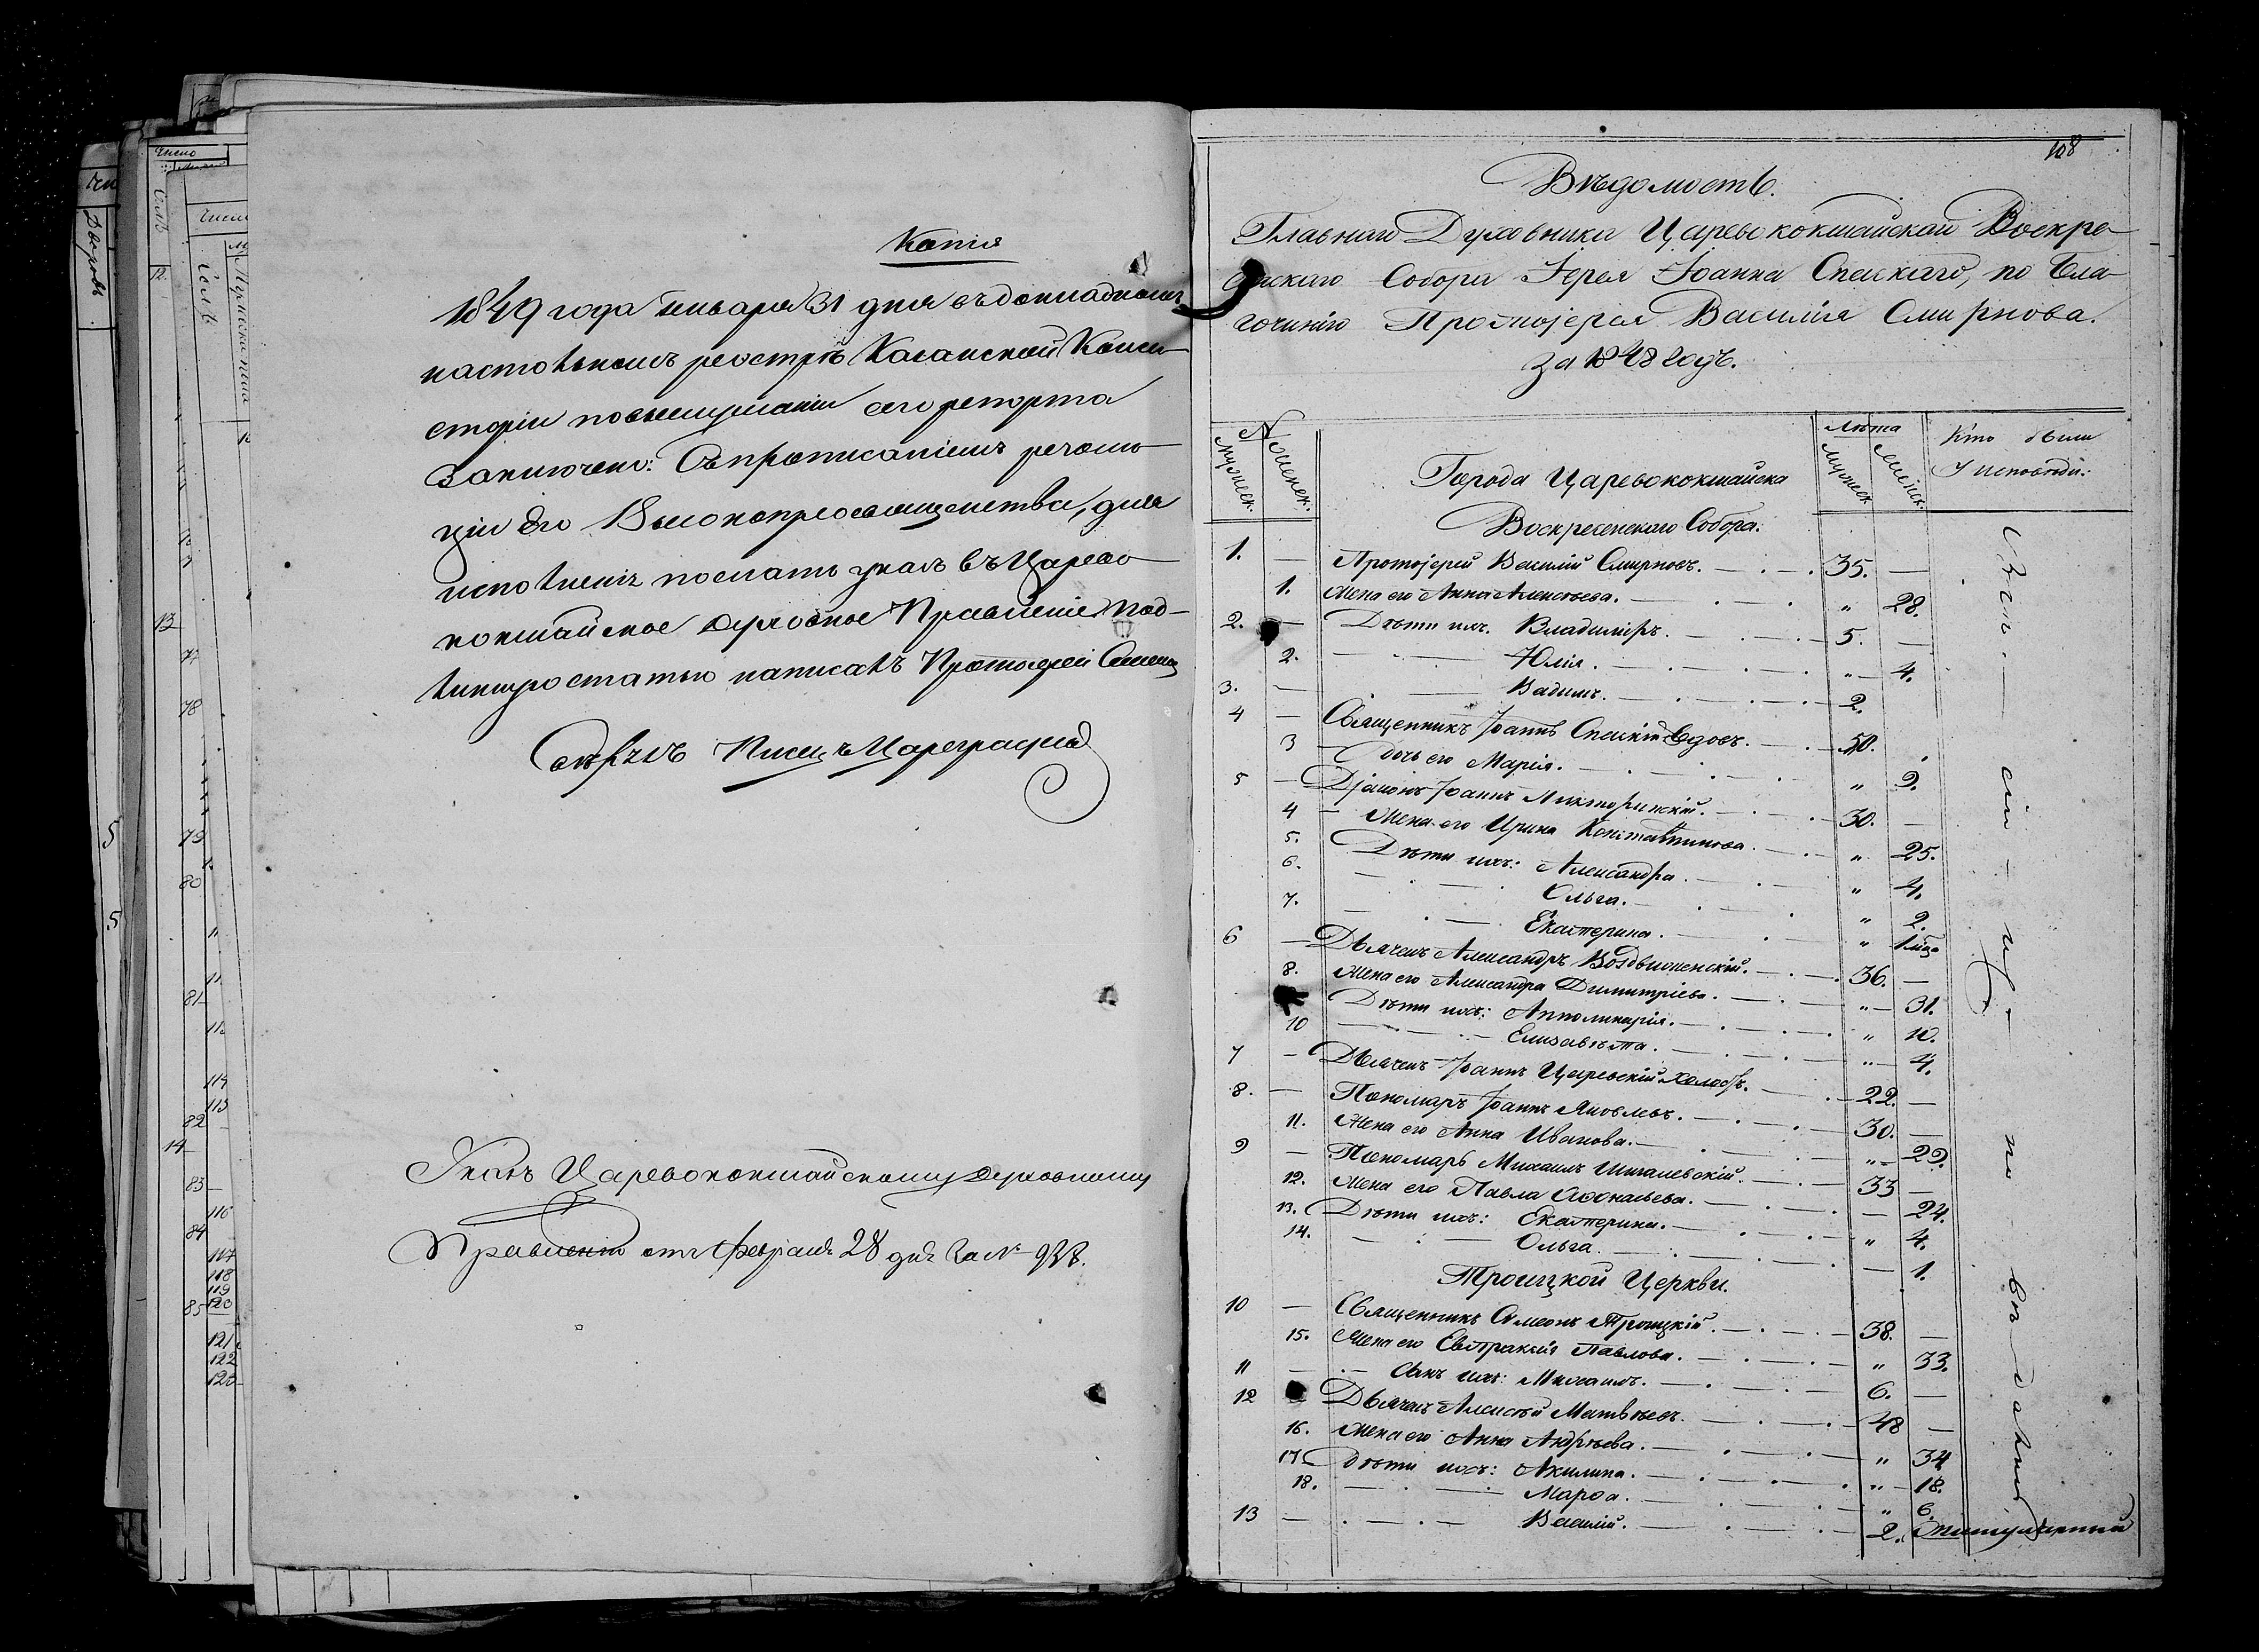 Копія
1849 года Января 31 дня въ докладномъ
настольномъ реэстрѣ Казанской Конси-
сторіи по выслушаніи сего репорта
заключено: Съ прописаніемъ резолю-
ціи Его Высокопреосвященства, для
исполненія послать указъ въ Царево-
кокшайское Духовное Правленіе. Под-
линную статью написалъ Протоіерей
Свѣрялъ Писецъ Цареградскій
Указъ Царевококшайскому Духовному
Правленію отъ Февраля 28 дня за № 938.
108
Вѣдомость.
Главнаго Духовника Царевококшайскаго Воскре-
сенскаго Собора Іерея Іоанна Спаскаго, по Бла-
гочинію Протоіерея Василія Смирнова.
За 1848 годъ.
№
мужеск. женск. Города Царевококшайска Лѣта мужеск. женск. Кто были у исповѣди:
Воскресенскаго Собора:
1. — Протоіерей Василій Смирновъ. 35. —
1. Жена его Анна Алексѣева. „ 28.
2. — Дѣти ихъ. Владиміръ. 5. —
2. Юлія. „ 4.
3. — Вадимъ. 2.
4 — Священникъ Іоаннъ Спаскій вдовъ. 50.
3 — дочь его Марія. „ 9.
5 — Діаконъ Іоаннъ Микторинскій. 30. —
4 — Жена его Ирина Константинова. „ 25.
5. Дѣти ихъ: Александра. „ 4.
6. Ольга. „ 2.
7. Екатерина. „ 1 мѣс.
6 — Дьячекъ Александръ Воздвиженскій. 36. —
8. Жена его Александра Димитріева. „ 31.
Дѣти ихъ: Апполинарія. „ 10.
10 Елизавѣта. „ 4.
7 — Дьячекъ Іоаннъ Царевскій холостъ. 22. —
8. — Пономарь Іоаннъ Яковлевъ. 30. —
11. Жена его Анна Иванова. „ 22.
9 — Пономарь Михаилъ Шигалевскій. 33 —
12. Жена его Павла Афонасьева. — 24.
13. Дѣти ихъ: Екатерина. „ 4.
14. Ольга. — 1.
Троицкой Церкви.
10 — Священникъ Симеонъ Троицкій. 38. —
15. Жена его Евпраксія Павлова. „ 33.
11 — Сынъ ихъ: Михаилъ. 6. —
12 Дьячекъ Алексѣй Матвѣевъ. 48 —
16. Жена его Анна Андрѣева. „ 34
17 дѣти ихъ: Акилина. „ 18.
18. Марѳа. „ 6.
13 — Василій. 2.